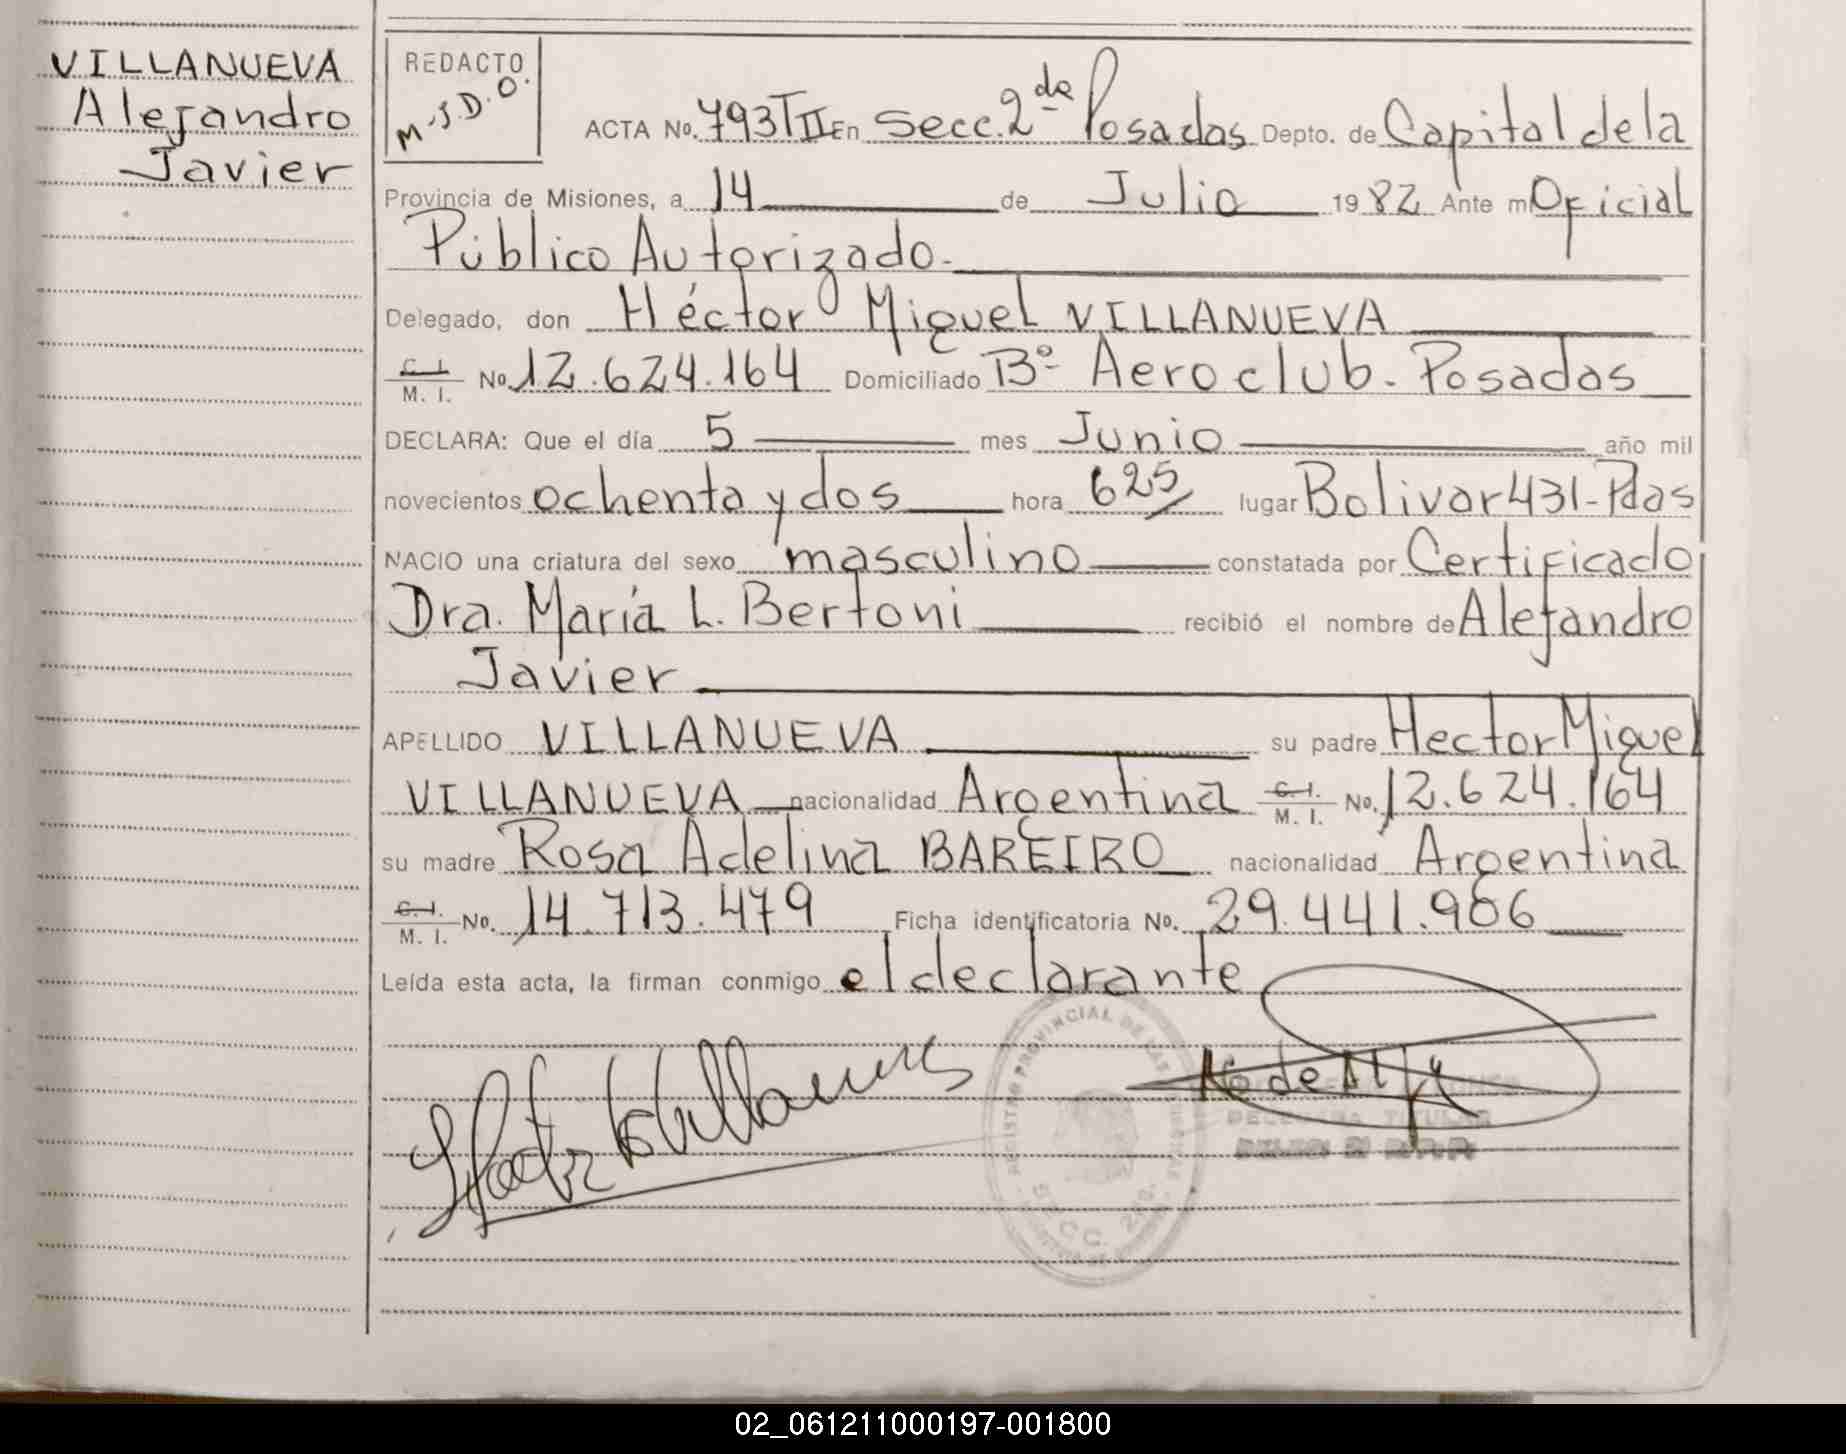 VILLANUEVA
Alejandro
Javier
REDACTO
M.J.D.O.
ACTA No. 793 T II En Secc. 2da Posadas Depto. de Capital de la
Provincia de Misiones, a 14 de Julio 1982 Ante mi Oficial
Público Autorizado.
Delegado, don Héctor Miguel VILLANUEVA
C. I. M. I. No. 12.624.164 Domiciliado Bº Aeroclub. Posadas
DECLARA: Que el día 5 mes Junio año mil
novecientos ochenta y dos hora 625 lugar Bolivar 431-Pdas
NACIO una criatura del sexo masculino constatada por Certificado
Dra. María L. Bertoni recibió el nombre de Alejandro
Javier
APELLIDO VILLANUEVA su padre Hector Miguel
VILLANUEVA nacionalidad Argentina C. I. M. I. No. 12.624.164
su madre Rosa Adelina BAREIRO nacionalidad Argentina
C. I. M. I. No. 14.713.479 Ficha identificatoria No. 29.441.906
Leída esta acta, la firman conmigo el declarante
REGISTRO PROVINCIAL DE LAS
DELEGADA TITULAR
SECC. 2da.
02_061211000197-001800